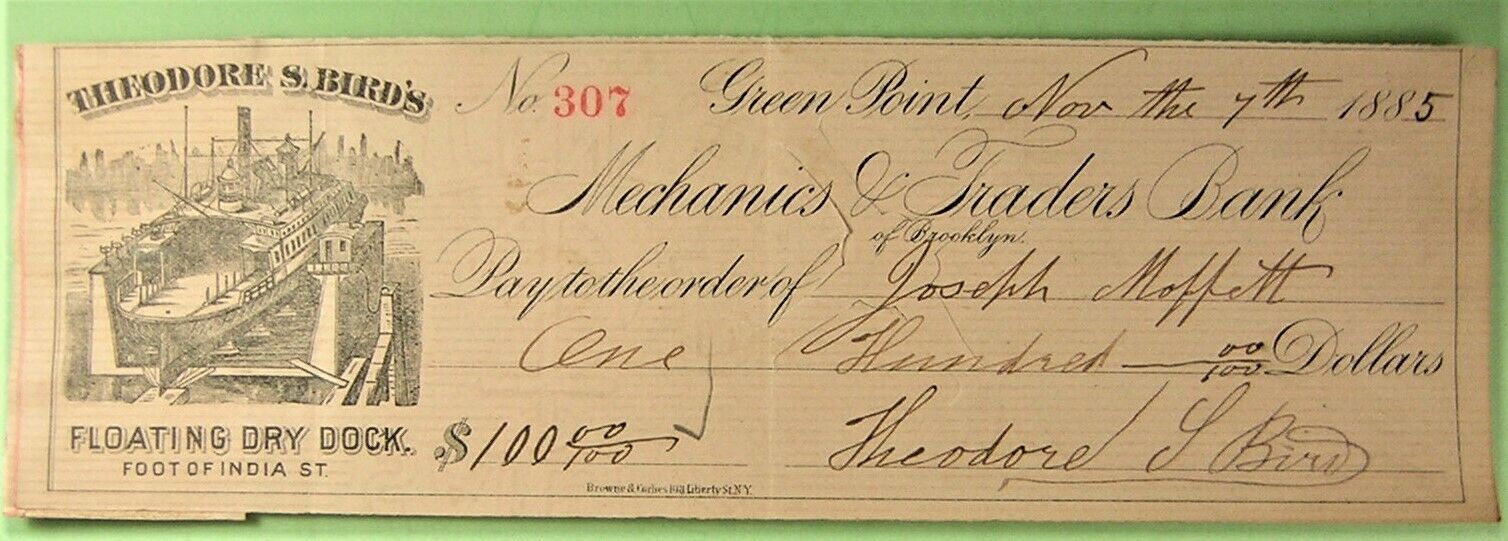 THEODORE S. BIRD'S
FLOATING DRY DOCK.
FOOT OF INDIA ST.
No. 307 Green Point, Nov the 7th 1885
Mechanics & Traders Bank
of Brooklyn.
Pay to the order of Joseph Moffett
One Hundred 00/100 Dollars
$100 00/100 Theodore S Bird
Browne & Forbes 108 Liberty St. N.Y.